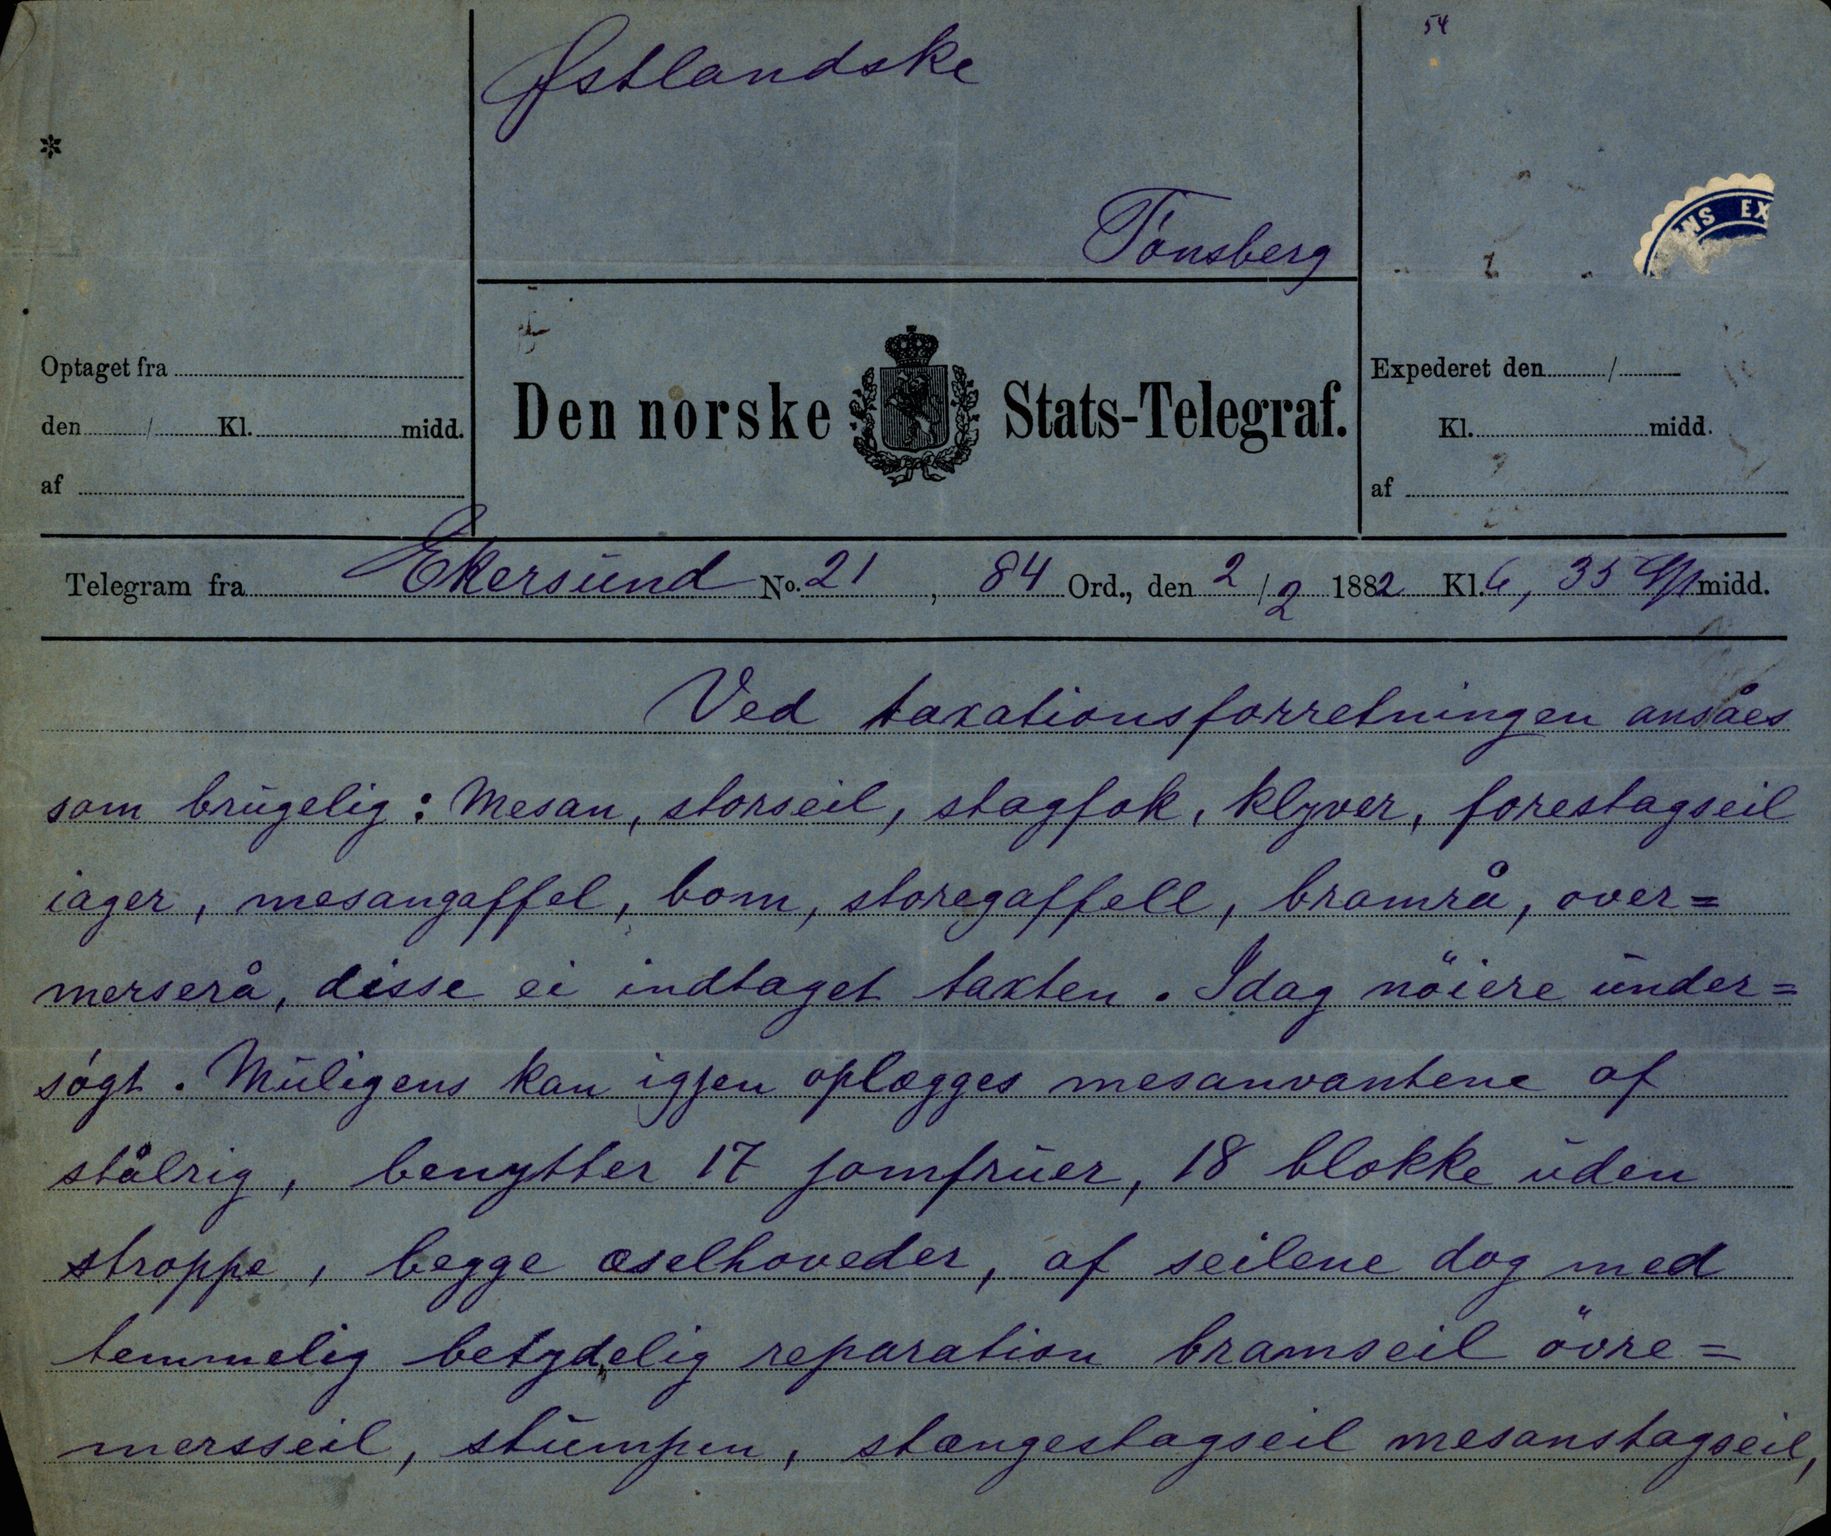 54
Østlandske
Tönsberg
NS EX
*
Optaget fra
den / Kl. midd.
af
Den norske Stats-Telegraf.
Expederet den /
Kl. midd.
af
Telegram fra Ekersund No. 21, 84 Ord., den 2/2 1882 Kl. 6, 35 midd.
Ved taxationsforretningen ansåes
som brugelig: Mesan, storseil, stagfok, klyver, forestagseil
iager, mesangaffel, bom, storegaffell, bramrå, over=
merserå, disse ei indtaget taxten. Idag nöiere under=
sögt. Muligens kan igjen oplægges mesanvantene af
stålrig, benytter 17 jomfruer, 18 blokke uden
stroppe, begge æselhoveder, af seilene dog med
temmelig betydelig reparation bramseil övre=
mersseil, stumpen, stængestagseil mesanstagseil,